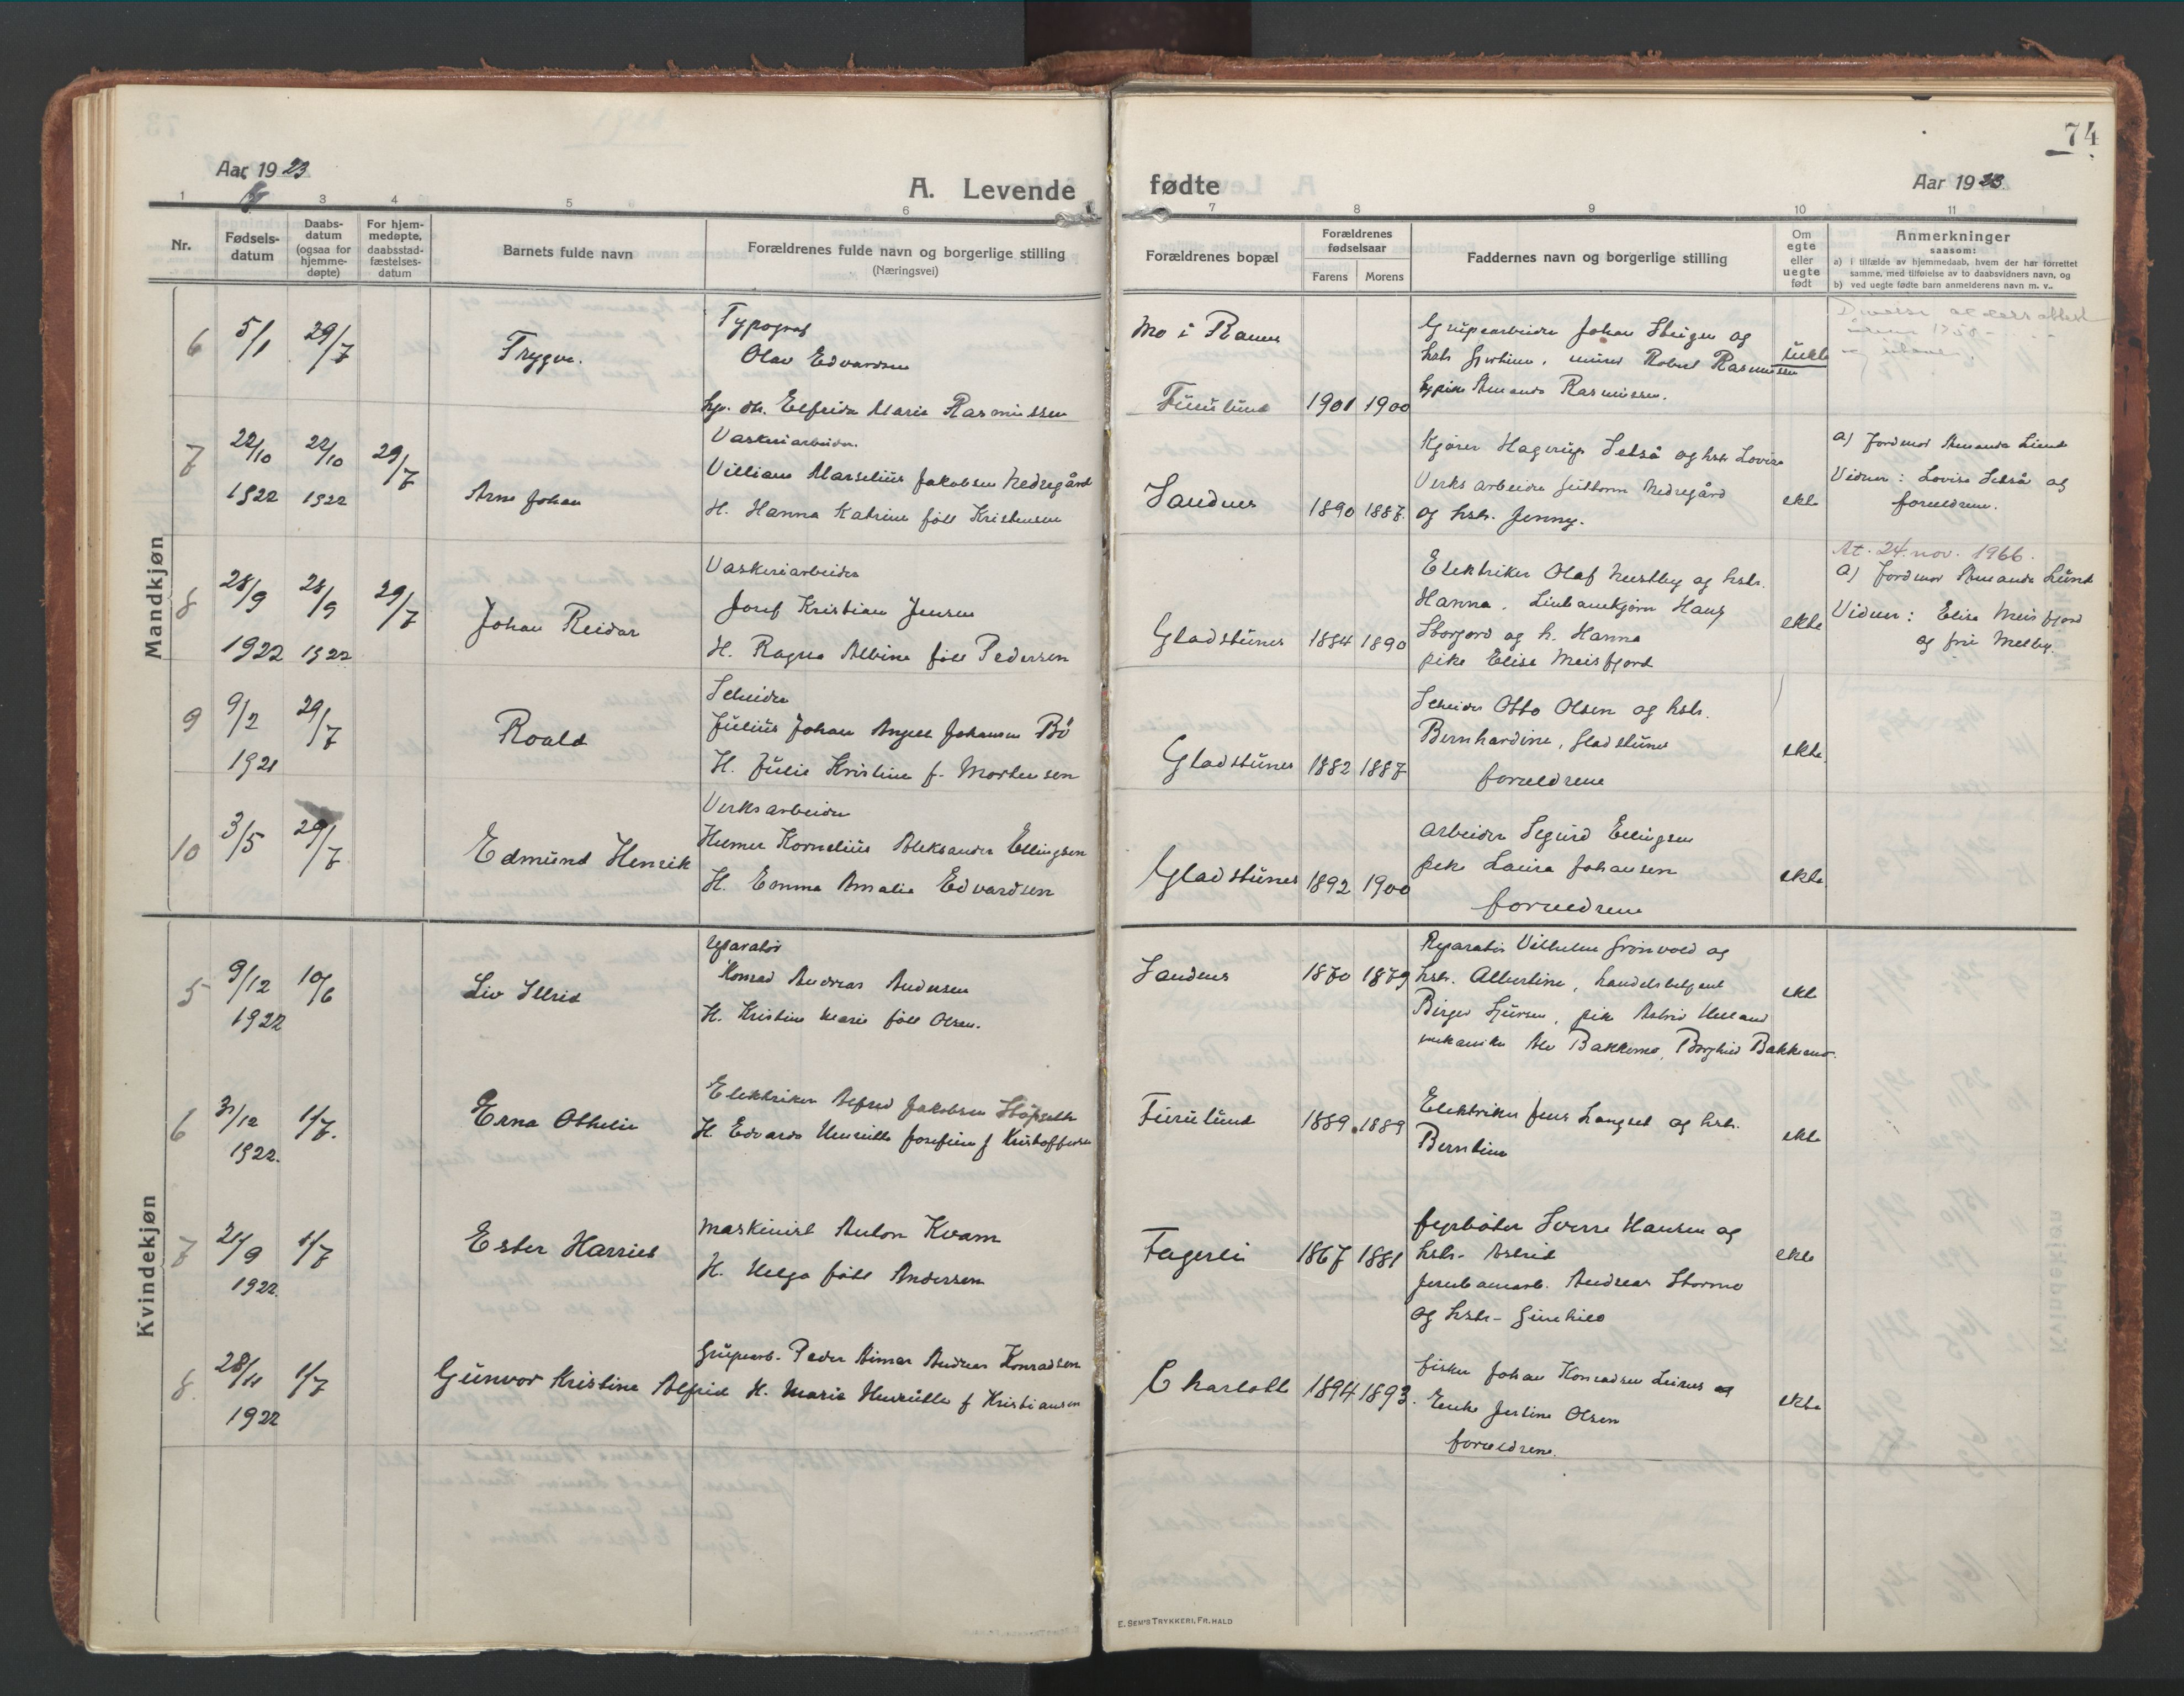 74
Aar 1923
A. Levende fødte
Aar 1923
1 3 4 5 6 7 8 9 10 11
Nr.
Fødsels-
datum
Daabs-
datum
(ogsaa for
hjemme-
døpte)
For hjem-
medøpte,
daabsstad-
fæstelses-
datum
Barnets fulde navn
Forældrenes fulde navn og borgerlige stilling
(Næringsvei)
Forældrenes bopæl
Forældrenes
fødselsaar
Farens Morens
Faddernes navn og borgerlige stilling
Om
egte
eller
uegte
født
Anmerkninger
saasom:
a) i tilfælde av hjemmedaab, hvem der har forrettet
samme, med tilføielse av to daabsvidners navn, og
b) ved uegte fødte barn anmelderens navn m. v..
Mandkjøn
6 5/1 29/7 Trygve.
Typograf
Olav Edvardsen
Elfrida Marie Rasmussen
Mo i Rana
Furulund 1901 1900
Grubearbeider Johan og
hstr. Robert Rasmussen
Amanda Rasmussen.
uekte
7 22/10 1922 22/10 1922 29/7 Arne Johan
Vaskeriarbeider.
Villiam Marselius Jakobsen Nedregård
H. Hanna Katrine föll Kristensen
Sandnes 1890 1887.
Kjører Hagerup Selså og hstr Lovise
Verksarbeider Guttorm Nedregård
og hstr. Jenny.
ekte
a) Jordmor Amanda Lund
Vidner: Lovise Selså og
foreldrene.
8 28/9 1922 28/9 1922 29/7 Johan Reidar
Vaskeriarbeider
Josef Kristian Jensen
H. Ragna Albine föll Pedersen
Gladstunes 1884 1890
Elektriker Olaf Nestby og hstr.
Hanna. Hans
Storjord og h. Hanna
pike Elise Meisfjord
ekte
At. 24. nov. 1966.
a) Jordmor Amanda Lund
Vidner: Elise Meisfjord
og fru Melby.
9 9/2 1921 29/7 Roald
Scheider
Julius Johan Angell Johansen Bö
H. Julie Kristine f. Mortensen
Gladstunes 1882 1887
Scheider Otto Olsen og hstr.
Bernhardine, Gladstunes
foreldrene
ekte.
10 3/5 29/7 Edmund Henrik
Verksarbeider
Helmer Kornelius Aleksander Ellingsen
H. Emma Amalie Edvardsen
Gladstunes 1892 1900
Arbeider Sigurd Ellingsen
pike Laura Johansen
foreldrene
ekte
Kvindekjøn
5 9/12 1922 10/6 Liv
Reparatör
Konrad Andreas Andersen
H. Kristine Marie föll Olsen.
Sandnes 1870 1879
Reparatör Vilhelm Grönvold og
hstr. Albertine, handelsbetjent
Birger Sjursen, pike Astrid Helland
mekaniker Alv Bakkemo, Borghild Bakkemo.
ekte
6 31/12 1922. 1/7. Erna Othelie
Elektriker Alfred Jakobsen Stöpseth
H. Edvarda Henriette Josefine f Kristoffersen
Furulund 1889 1889
Elektriker Jens Langset og hstr.
Berntine
ekte
7 21/9 1922. 1/7 Ester Harriet
Maskinist Anton Kvam
H. Helga föll Andersen
Fagerli 1867 1881
fyrböter Sverre Hansen og
hstr. Astrid
Jernbanearb. Andreas Stormo
og hstr- Gunhild
ekte
8. 28/11 1922 1/7 Gunvor Kristine Alfrid
Grubearb. Peder Eimar Andreas Konradsen
H. Marie Henriette f Kristiansen
Charlotte 1894 1893.
fisker Johan Konradsen og
Enke Jertine Olsen
foreldrene.
ekte
E. SEM'S TRYKKERI, FR.HALD